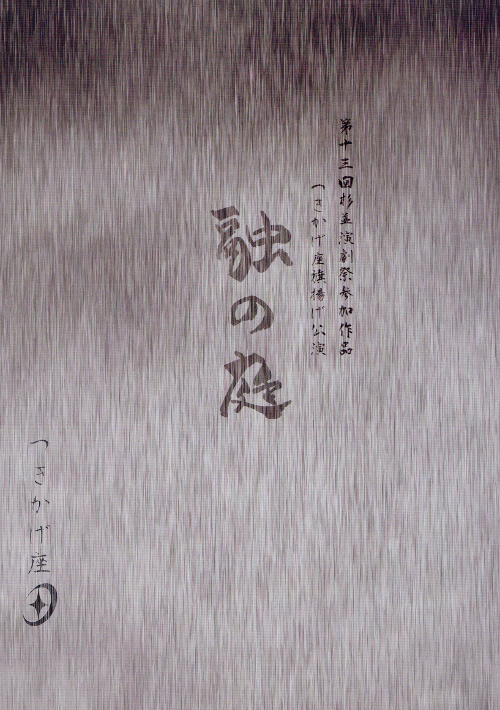 第十三回杉並演劇祭参加作品
つきかげ座旗揚げ公演
融の庭
つきかげ座